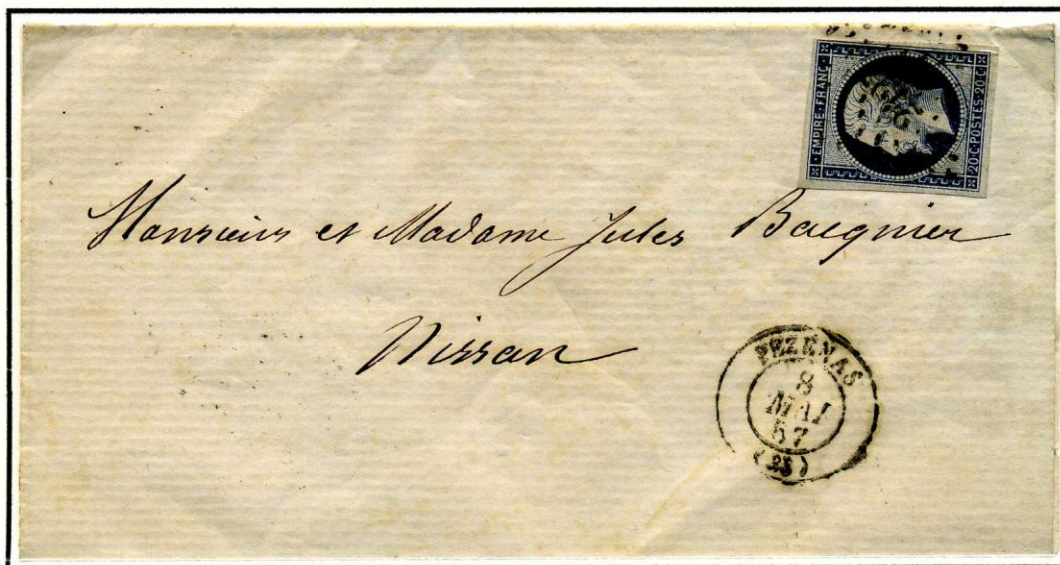 EMPIRE·FRANC·
20·C·POSTES·20·C·
Monsieur et Madame Jules
Nissan
PEZENAS
8
MAI
57